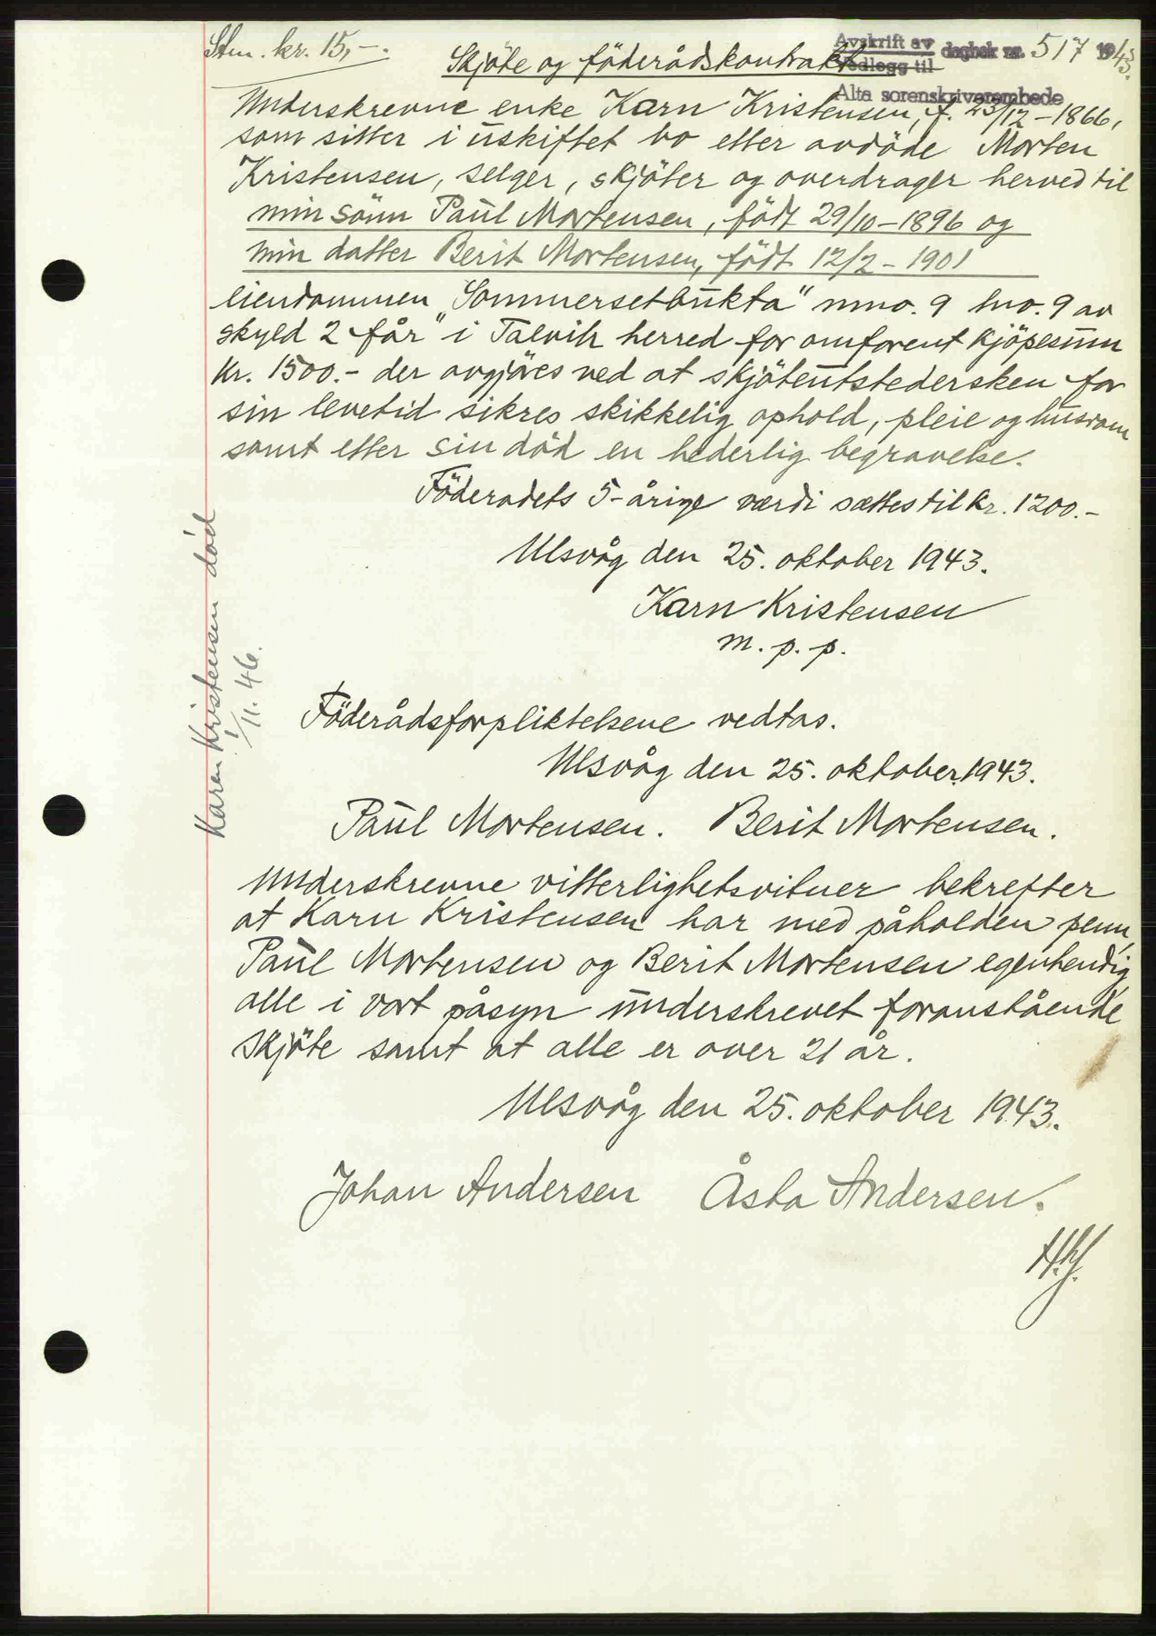 Stm. kr. 15,-.
Avskrift av
Vedlegg til
dagbok nr. 517 1943.
Alta sorenskriverembede
Skjöte og föderådskontrakt
Underskrevne enke Karn Kristensen, f. 23/12-1866,
som sitter i uskiftet bo etter avdöde Morten
Kristensen, selger, skjöter og overdrager herved til
min sönn Paul Mortensen, födt 29/10-1896 og
min datter Berit Mortensen, födt 12/2-1901
eiendommen "Sommersetbukta" mno. 9 lno. 9 av
skyld 2 får" i Talvik herred for omforent kjöpesum
kr. 1500.- der avgjöres ved at skjöteutstedersken for
sin levetid sikres skikkelig ophold, pleie og husrom
samt etter sin död en hederlig begravelse.
Föderadets 5-årige værdi sættes til kr. 1200.-
Ulsvåg den 25. oktober 1943.
Karn Kristensen
m. p. p.
Karen Kristensen död
1/11. 46.
Föderådsforpliktelsene vedtas.
Ulsvåg den 25. oktober 1943.
Paul Mortensen. Berit Mortensen.
Underskrevne vitterlighetsvitner bekrefter
at Karn Kristensen har med påholden penn,
Paul Mortensen og Berit Mortensen egenhendig
alle i vort påsyn underskrevet foranstående
skjöte samt at alle er over 21 år.
Ulsvåg den 25. oktober 1943.
Johan Andersen Åsta Andersen.